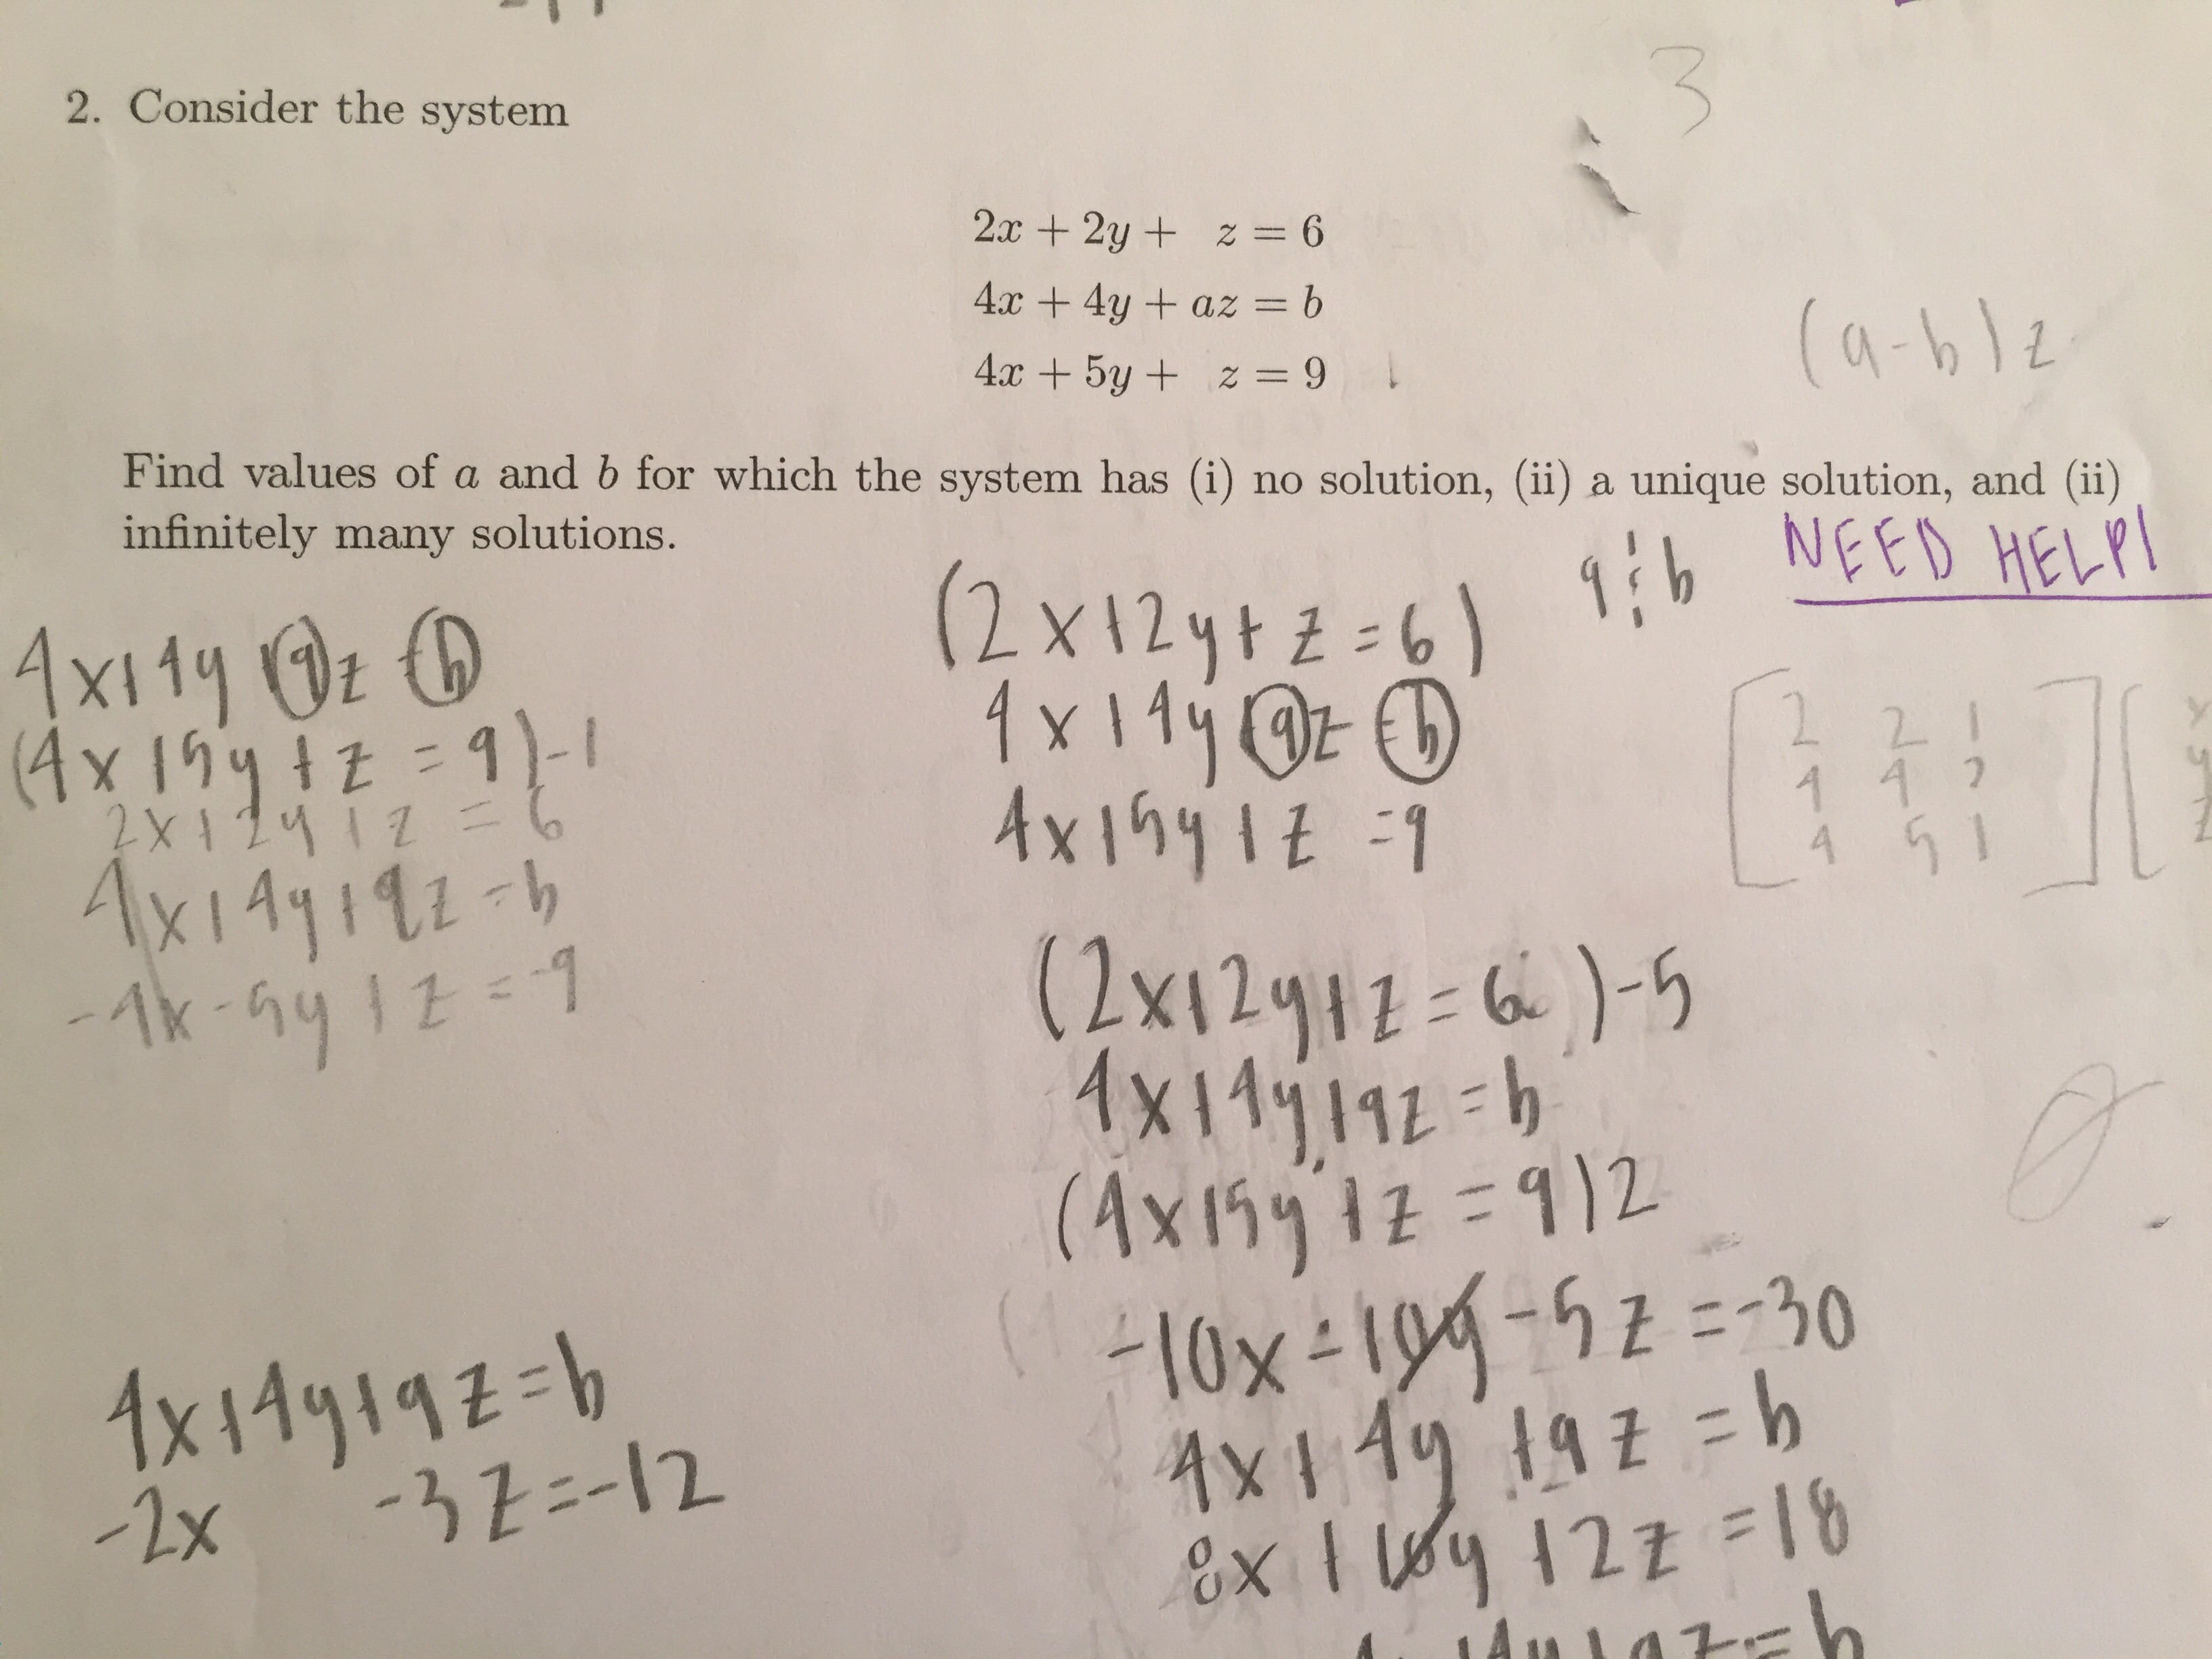 3
2. Consider the system
2x + 2y + z = 6
4x + 4y + az = b
4x + 5y + z = 9
(a-b)z
Find values of a and b for which the system has (i) no solution, (ii) a unique solution, and (ii)
infinitely many solutions.
NEED HELP!
a & b
4x+4y+az=b
(4x+5y+z=9)-1
2x+2y+z=6
4x+4y+az=b
-4x-5y+z=-9
4x+4y+az=b
-2x -3z=-12
(2x+2y+z=6)
4x+4y+az=b
4x+5y+z=9
(2x+2y+z=6)-5
4x+4y+az=b
(4x+5y+z=9)2
-10x-10y-5z=-30
4x+4y+az=b
8x+10y+2z=18
4x+4y+az=b
2 2 1
4 4
4 5 1
x
y
z